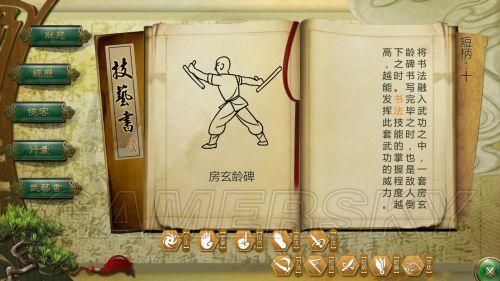 狀態
經歷
俠客
行囊
武藝書
技藝書
房玄龄碑
短柄:十
将书法融入武功之中,一套房玄
龄碑书写完毕之时,也是敌人倒
下之时。书法技能的掌握程度越
高,越能发挥此套武功的威力。
GAMERSKY